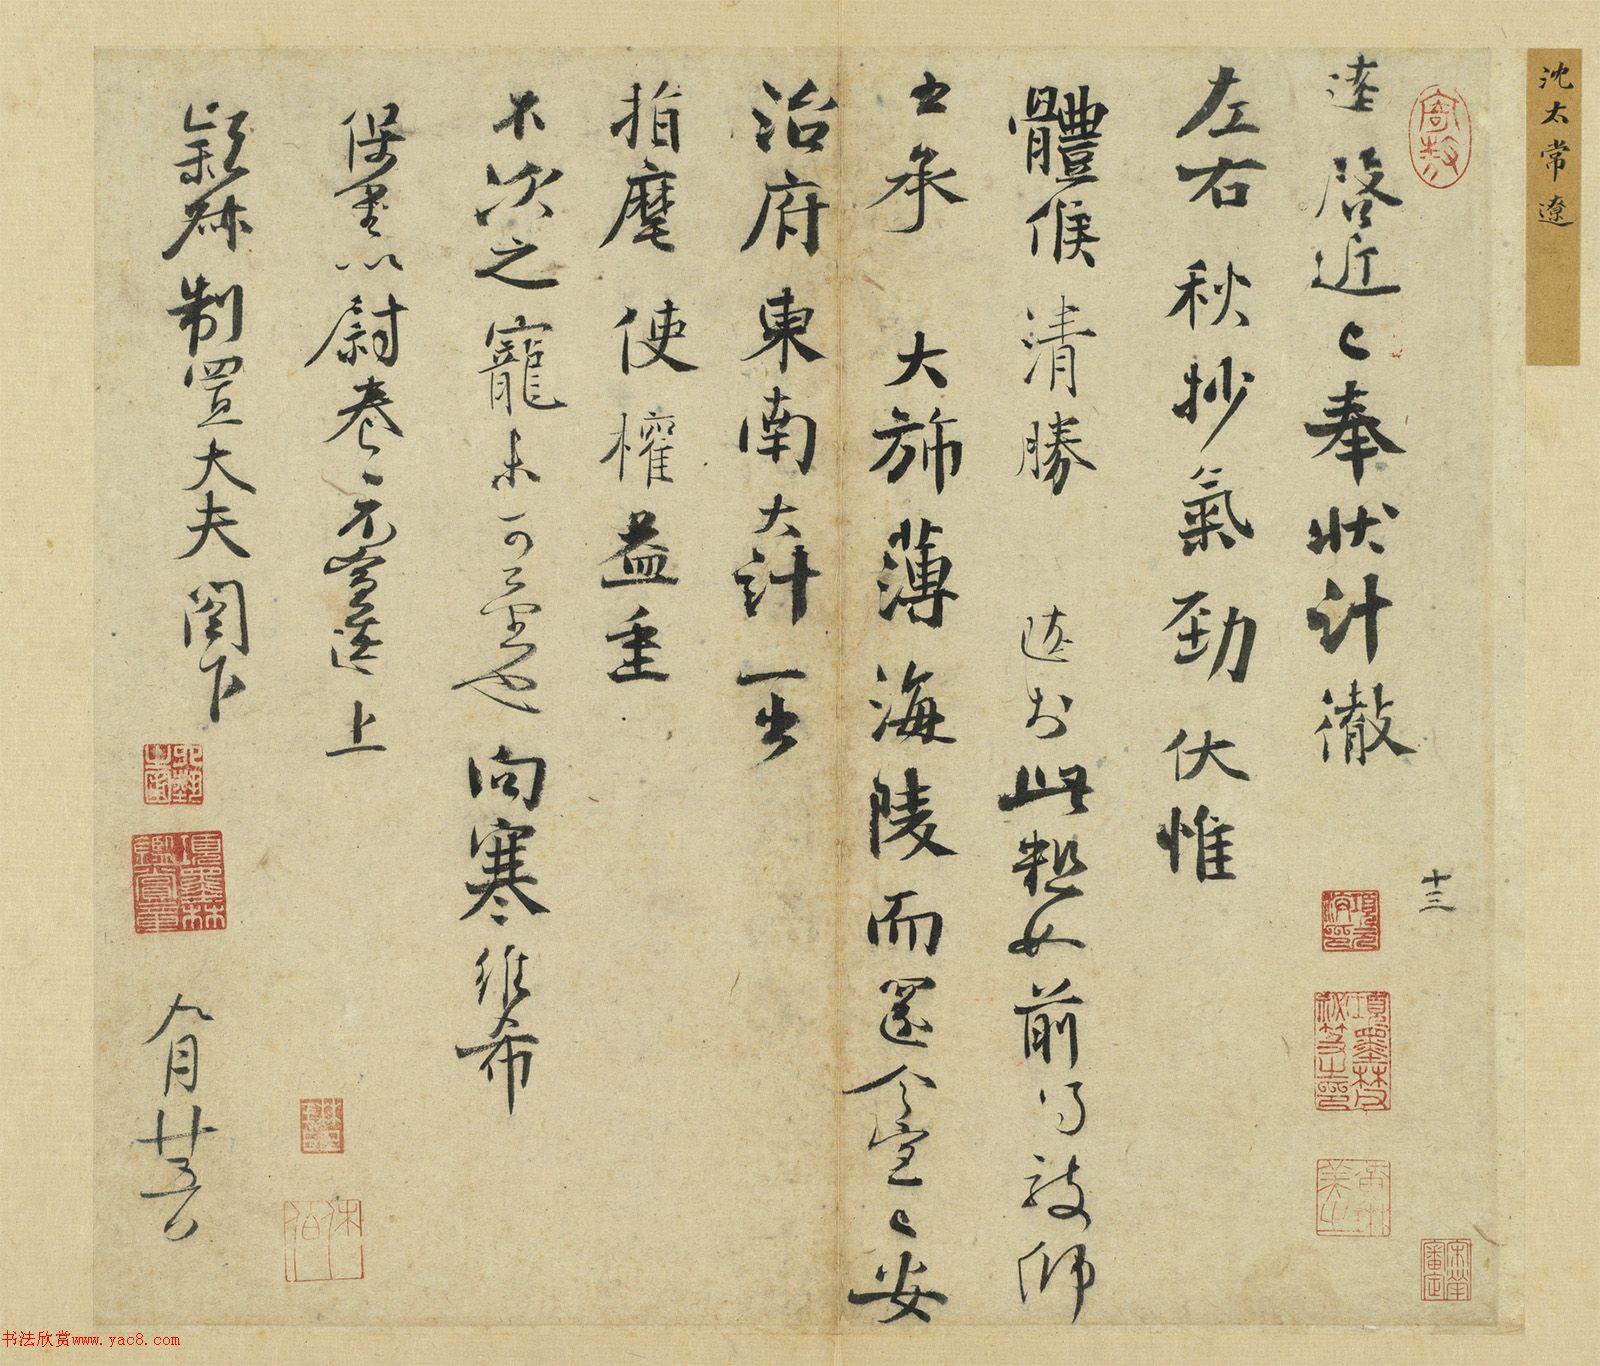 沈太常遼
十三
逵啓近〻奉狀計徹
左右秋抄氣勁伏惟
體候清勝逵於此粗如前日致師
古承大旆薄海陵而還今定〻安
治府東南大計一出
指麾使權益重
不次之寵未可量也向寒維希
保重以慰卷〻不宣逵上
叡弼制置大夫閤下
九月廿五日
書法欣賞www.yac8.com